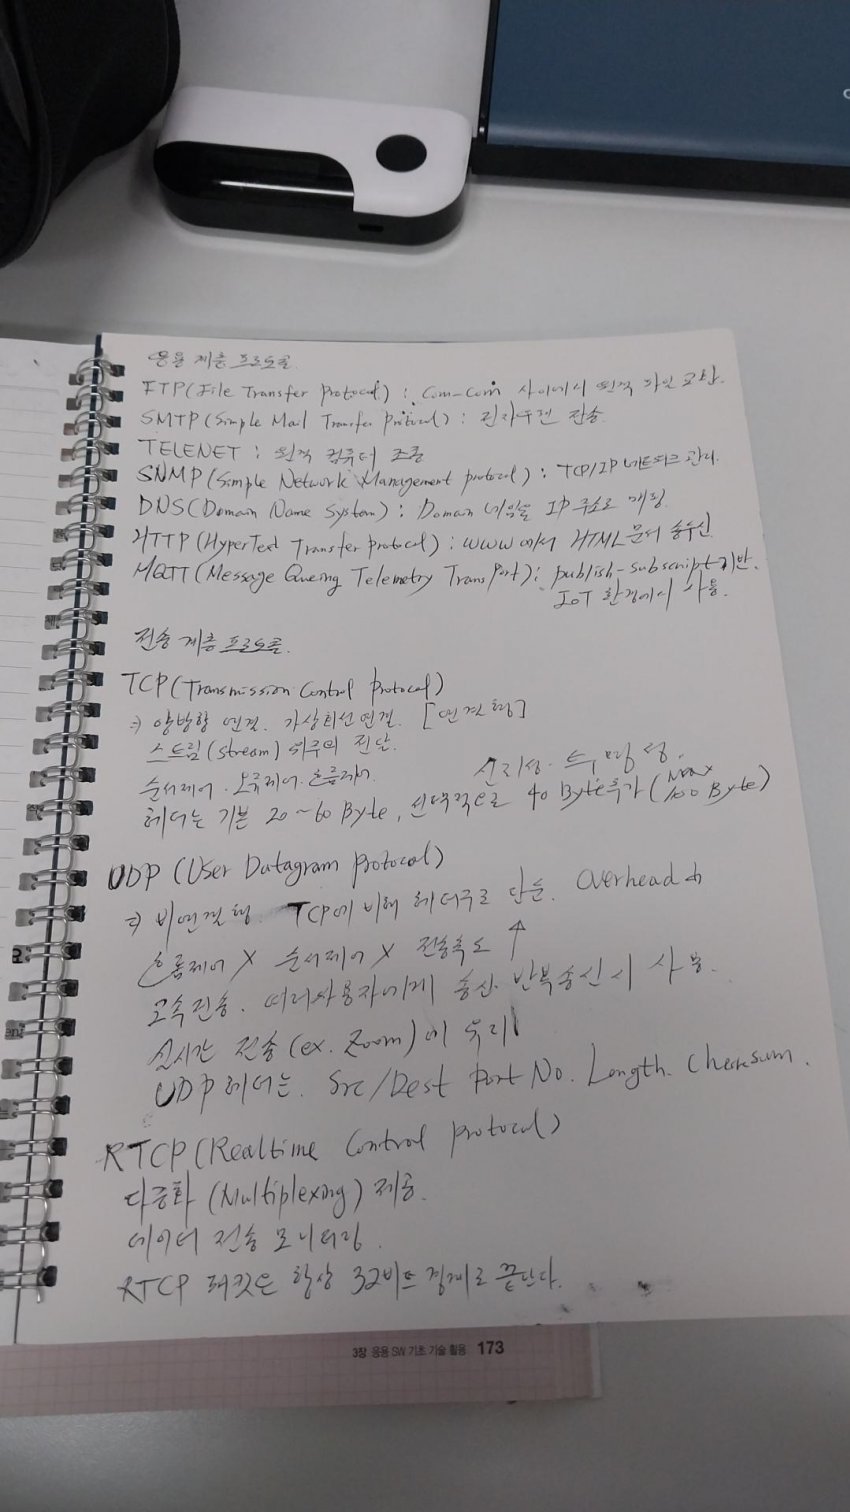 응용 계층 프로토콜.
FTP(File Transfer Protocol) : Com-Com 사이에서 원격 파일 교환.
SMTP(Simple Mail Transfer Protocol) : 전자우편 전송.
TELENET : 원격 컴퓨터 조종
SNMP(Simple Network Management protocol) : TCP/IP 네트워크 관리.
DNS(Domain Name System) : Domain 네임을 IP 주소로 매핑.
HTTP(HyperText Transfer protocol) : WWW에서 HTML 문서 송수신.
MQTT(Message Queing Telemetry Transport) : publish-subscript 기반.
IoT 환경에서 사용.
전송 계층 프로토콜.
TCP(Transmission Control Protocol)
⇒ 양방향 연결. 가상회선 연결. [연결형]
스트림(Stream) 위주의 전달. 신뢰성. 투명성.
순서제어. 오류제어. 흐름제어.
헤더는 기본 20~60 Byte, 선택적으로 40 Byte 추가 (Max 100 Byte)
UDP (User Datagram protocol)
⇒ 비연결형. TCP에 비해 헤더구조 단순. Overhead ↓
흐름제어 X 순서제어 X 전송속도 ↑
고속전송. 여러사용자에게 송신. 반복송신 시 사용.
실시간 전송 (ex. Zoom)에 유리
UDP 헤더는. Src/Dest Port No. Length. Checksum.
RTCP(Realtime Control Protocol)
다중화 (Multiplexing) 제공.
데이터 전송 모니터링.
RTCP 패킷은 항상 32비트 경계로 끝난다.
3장 응용 SW 기초 기술 활용 173